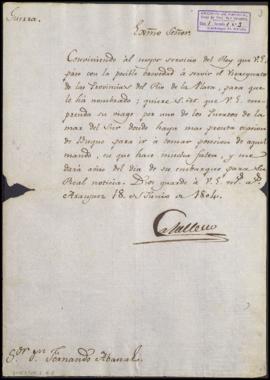 Guerra.
Exmo Señor.
Conviniendo al mejor servicio del Rey que V.E.
pase con la posible brevedad à servir el Virreynato
de las Provincias del Rio de la Plata, para que
le ha nombrado; quiere S.M. que V.E.
emprenda su viage por uno de los Puertos de la
mar del Sur donde haya mas pronta
de Buque para ir a tomar posesion de aquel
mando, en que hace mucha falta, y me
dia del de su embarque para
Real noticia. Dios guarde à V.E. m.s a.s
Aranjuez 18 de Junio de 1804.
Caballero
S.or D.n Fernando Abascal.